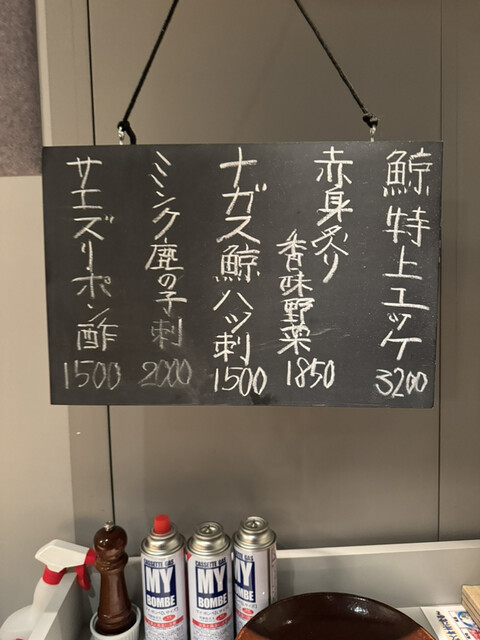 鯨特上ユッケ
3200
赤身炙り
香味野菜
1850
ナガス鯨ハツ刺
1500
ミンク鹿の子刺
2000
サエズリポン酢
1500
CASSETTE GAS
MY
BOMBE
CASSETTE GAS
MY
BOMBE
CASSETTE GAS
MY
BOMBE